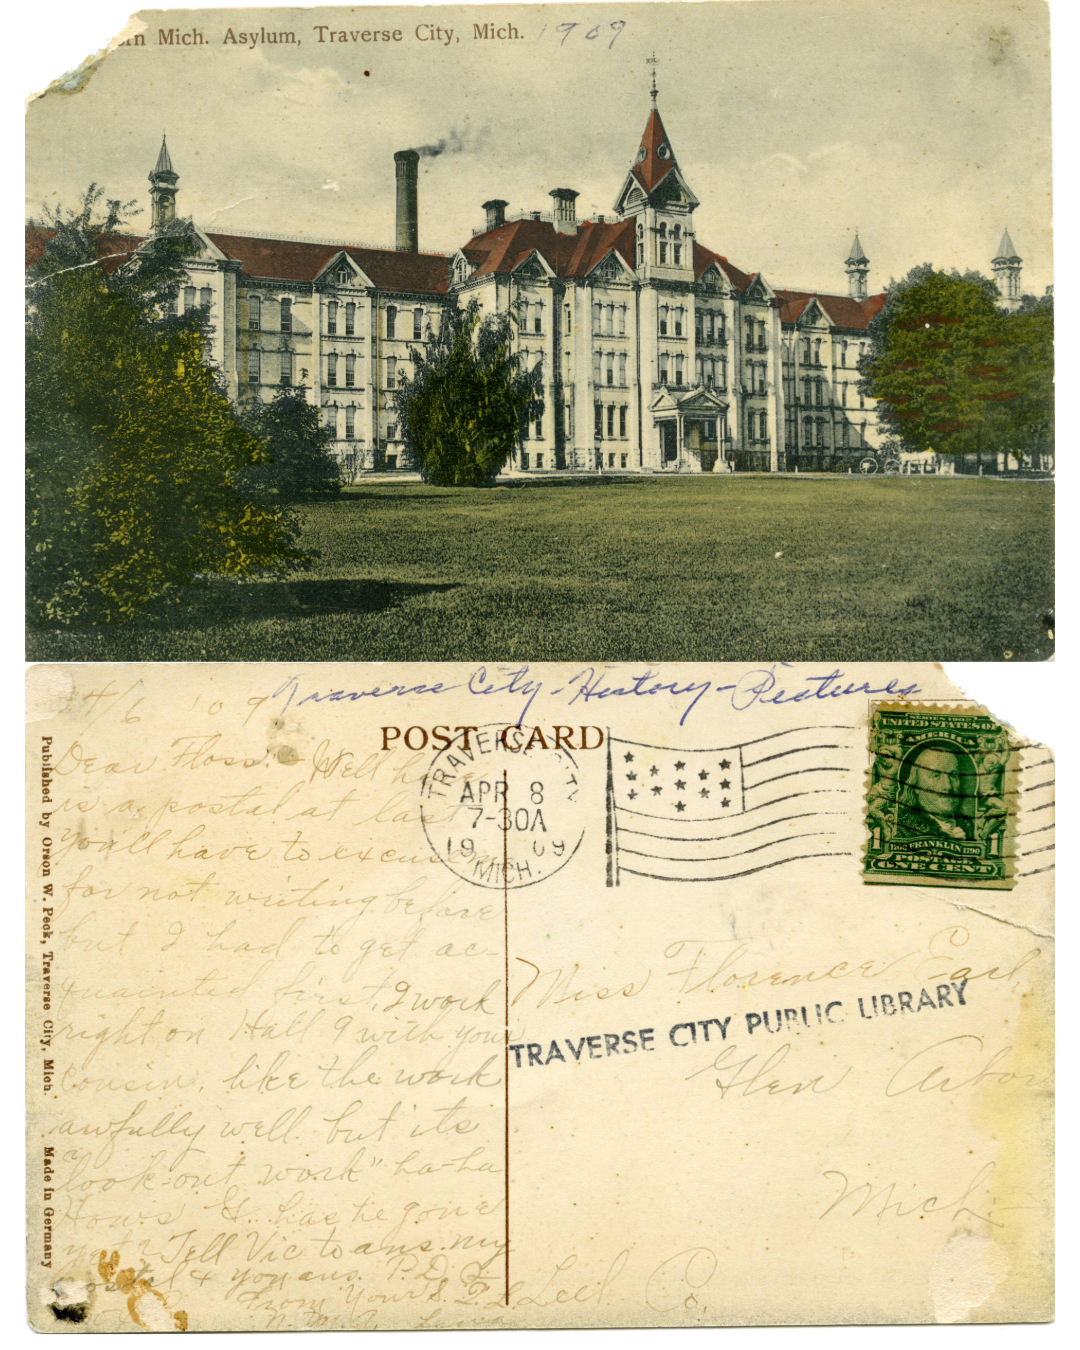 ern Mich. Asylum, Traverse City, Mich. 1909
4/6 '09
Traverse City-History-Pictures
POST CARD
TRAVERSE CITY
APR 8
7-30A
1909
MICH.
SERIES 1902
UNITED STATES OF
AMERICA
1706 FRANKLIN 1790
1 POSTAGE 1
ONE CENT
Published by Orson W. Peck, Traverse City, Mich.
Made in Germany
Dear Floss:- Well here
is a postal at last
You'll have to excuse
for not writing before
but I had to get ac-
quainted first, I work
right on Hall 9 with your
cousin, like the work
awfully well. but its
"look-out work" ha-ha
Hows G. has he gone
yet? Tell Vic to ans. my
postal & you ans. P.D.Q.
From Your S.
N. M. A.
Miss Florence
Glen Arbor
Mich.
Leel. Co.
TRAVERSE CITY PUBLIC LIBRARY